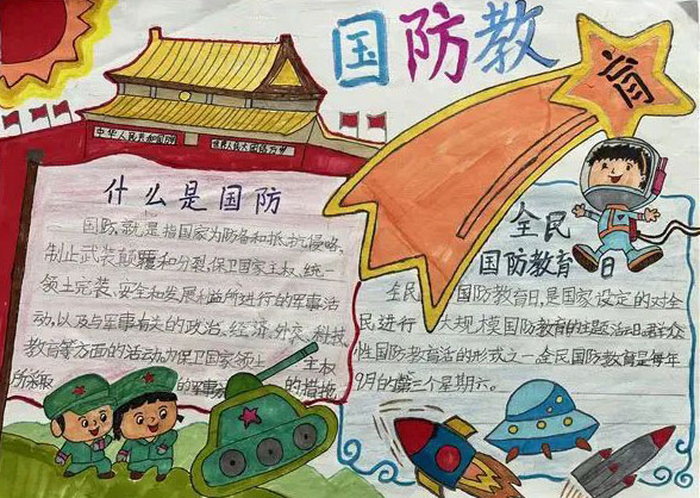 国防教育
中华人民共和国万岁
世界人民大团结万岁
什么是国防
国防,就是指国家为防备和抵抗侵略,
制止武装颠覆和分裂,保卫国家主权、统一
领土完装、安全和发展利益所进行的军事活
动,以及与军事有关的政治、经济、外交、科技、
教育等方面的活动为保卫国家领土 主权
所采取 的军事 的措施
全民
国防教育日
全民 国防教育日,是国家设定的对全
民进行 大规模国防教育的主题活动日群众
性国防教育活的形式之一,全民国防教育是每年
9月的第三个星期六。